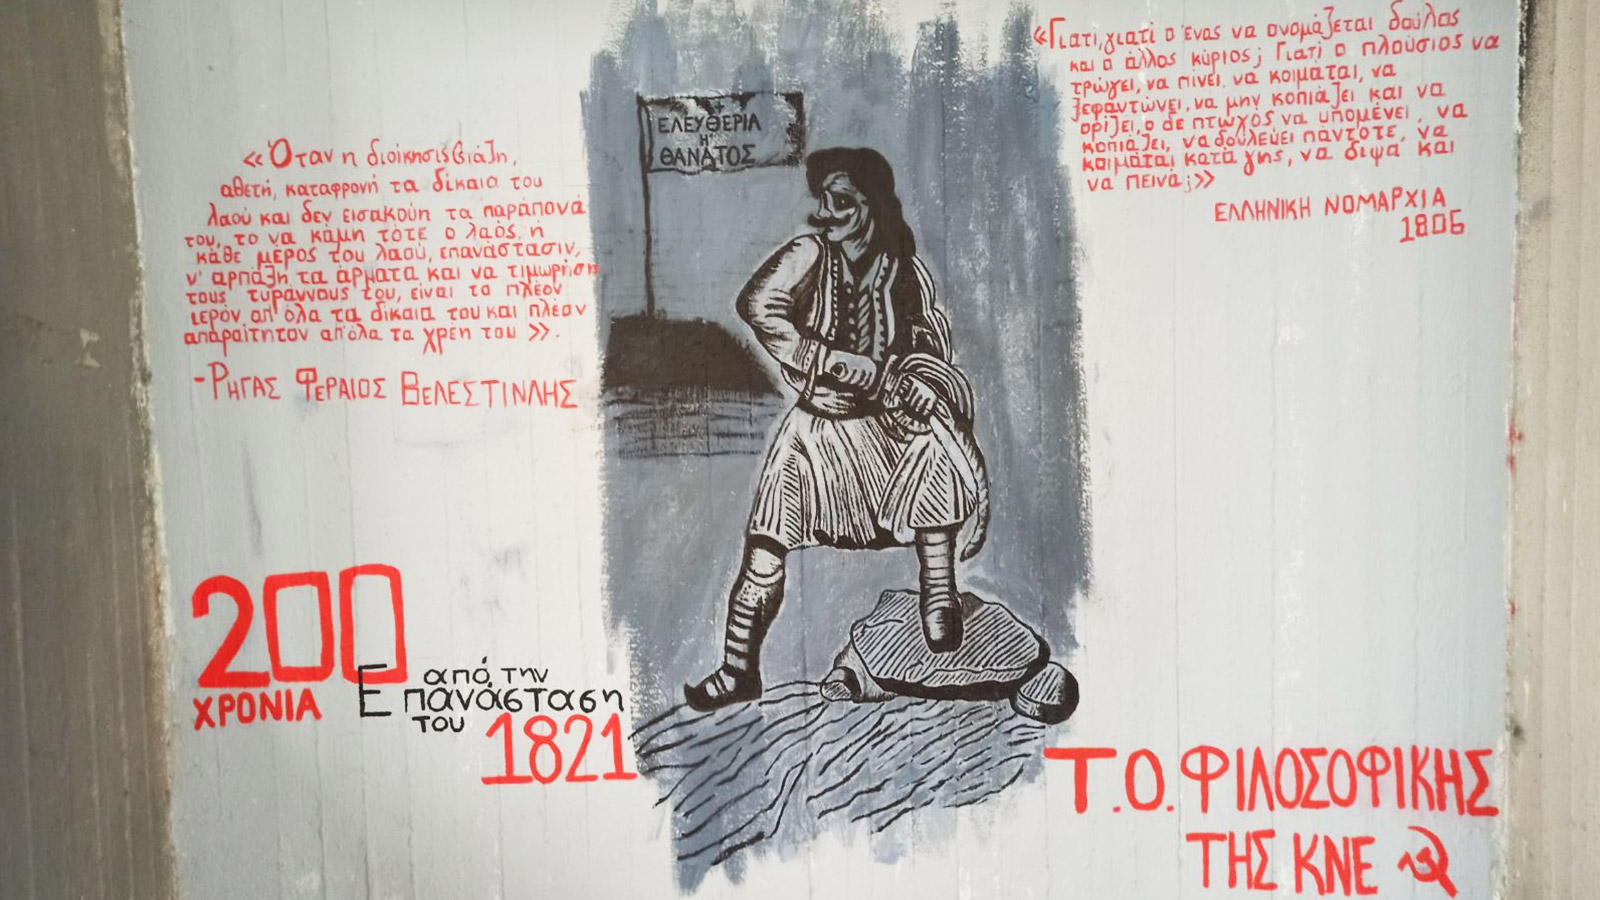 «Όταν η διοίκησις βιάζη,
αθετή, καταφρονή τα δίκαια του
λαού και δεν εισακούη τα παράπονά
του, το να κάμη τότε ο λαός, ή
κάθε μέρος του λαού, επανάστασιν,
ν' αρπάξη τα άρματα και να τιμωρήση
τους τυράννους του, είναι το πλέον
ιερόν απ' όλα τα δίκαια του και πλέον
απαραίτητον απ' όλα τα χρέη του».
-ΡΗΓΑΣ ΦΕΡΑΙΟΣ ΒΕΛΕΣΤΙΝΛΗΣ
200
ΧΡΟΝΙΑ
από την
Επανάσταση
του 1821
ΕΛΕΥΘΕΡΙΑ
Η'
ΘΑΝΑΤΟΣ
«Γιατί, γιατί ο ένας να ονομάζεται δούλος
και ο άλλος κύριος; Γιατί ο πλούσιος να
τρώγει, να πίνει, να κοιμαται, να
ξεφαντώνει, να μην κοπιάζει και να
ορίζει, ο δε πτωχός να υπομένει, να
κοπιάζει, να δουλεύει πάντοτε, να
κοιμάται κατά γης, να διψά και
να πεινά;»
ΕΛΛΗΝΙΚΗ ΝΟΜΑΡΧΙΑ
1806
Τ.Ο. ΦΙΛΟΣΟΦΙΚΗΣ
ΤΗΣ ΚΝΕ